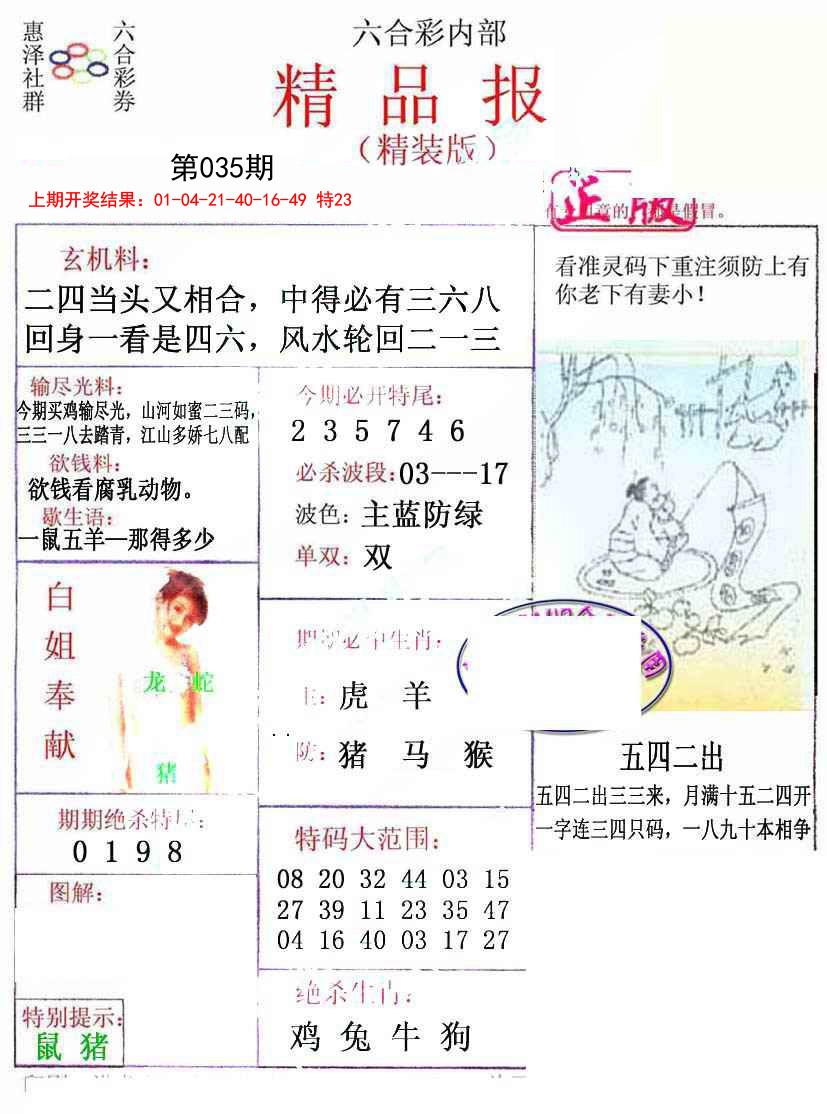 惠泽社群
六合彩券
六合彩内部
精品报
（精装版）
第035期
上期开奖结果：01-04-21-40-16-49 特23
正版
假冒。
玄机料：
二四当头又相合，中得必有三六八
回身一看是四六，风水轮回二一三
看准灵码下重注须防上有
你老下有妻小！
输尽光料：
今期买鸡输尽光，山河如蜜二三码，
三三一八去踏青，江山多娇七八配
欲钱料：
欲钱看腐乳动物。
歇生语：
一鼠五羊—那得多少
今期必开特尾：
2 3 5 7 4 6
必杀波段：03---17
波色：主蓝防绿
单双：双
白姐奉献
龙 蛇
猪
期期必中生肖：
主：虎 羊
防：猪 马 猴
五四二出
五四二出三三来，月满十五二四开
一字连三四只码，一八九十本相争
期期绝杀特尾：
0 1 9 8
特码大范围：
08 20 32 44 03 15
27 39 11 23 35 47
04 16 40 03 17 27
图解：
特别提示：
鼠 猪
绝杀生肖：
鸡 兔 牛 狗